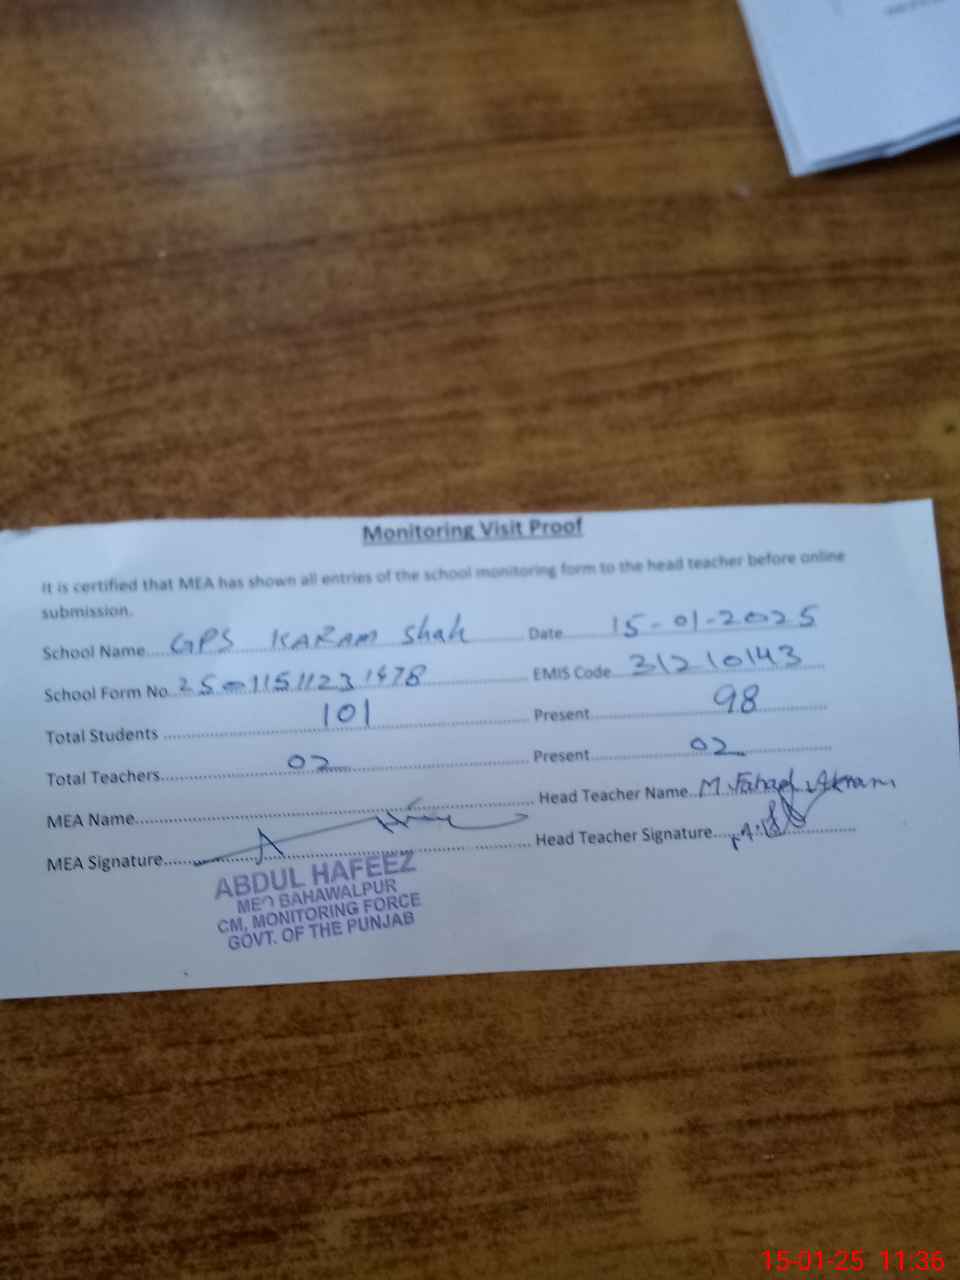 Monitoring Visit Proof
It is certified that MEA has shown all entries of the school monitoring form to the head teacher before online
submission.
School Name GPS KARAM Shah Date 15-01-2025
School Form No. EMIS Code 31210143
Total Students 101 Present 98
Total Teachers 02 Present 02
MEA Name Head Teacher Name M. Fahad Akram
MEA Signature Head Teacher Signature
ABDUL HAFEEZ
MEO BAHAWALPUR
CM, MONITORING FORCE
GOVT. OF THE PUNJAB
15-01-25 11:36